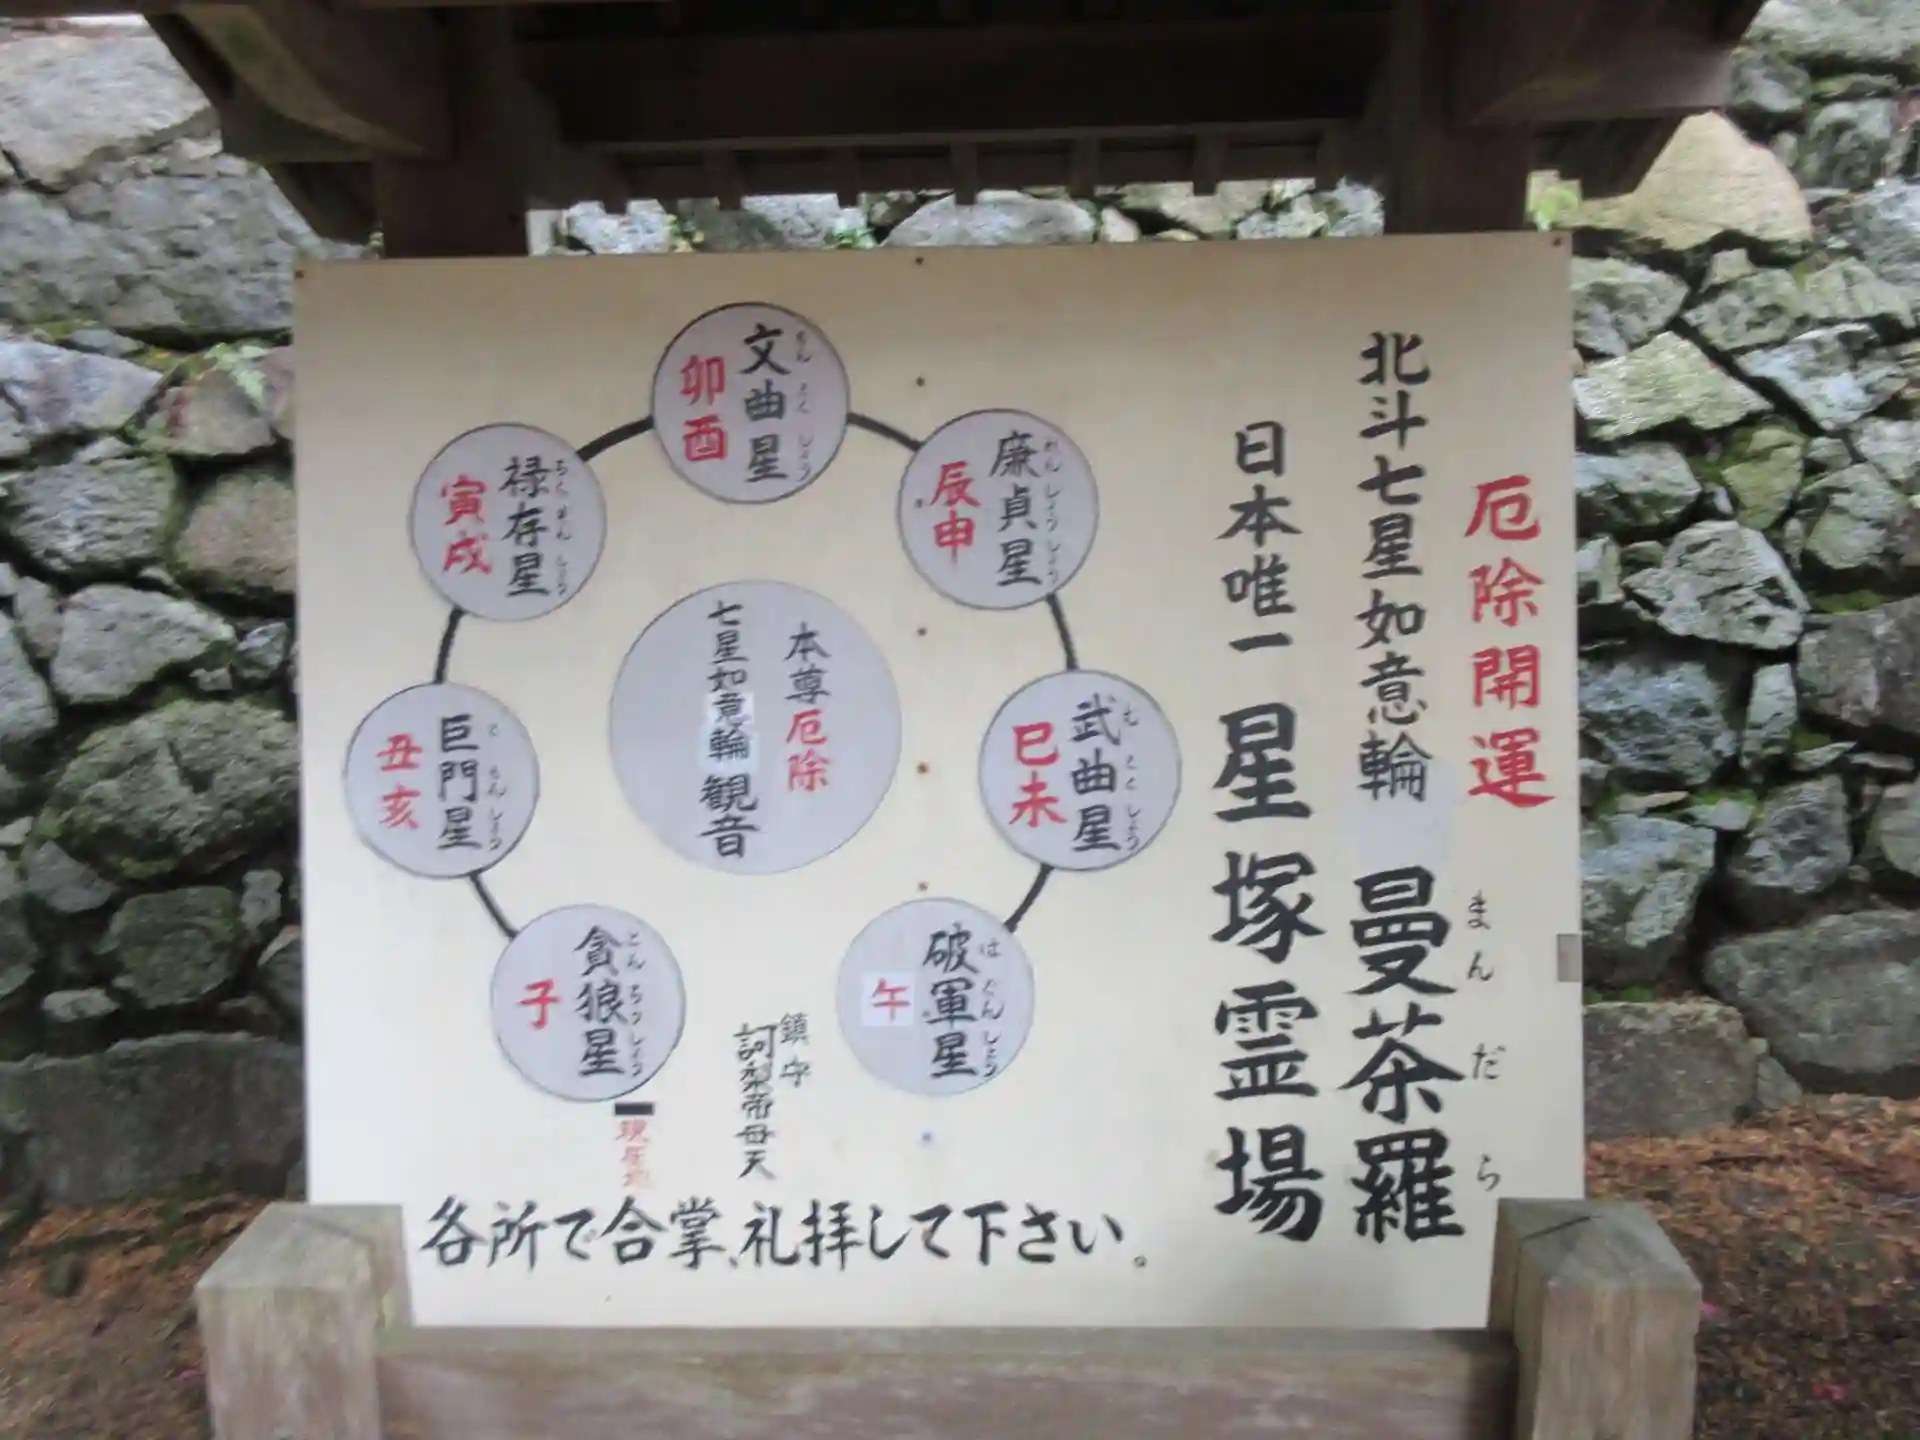 厄除開運
北斗七星如意輪 曼荼羅
まんだら
日本唯一 星塚霊場
文曲星
卯酉
廉貞星
れんじょうしょう
辰申
武曲星
むこくしょう
巳未
破軍星
はぐんしょう
午
禄存星
寅戌
巨門星
丑亥
貪狼星
子
本尊厄除
七星如意輪観音
鎮守
訶梨帝母天
現在地
各所で合掌、礼拝して下さい。